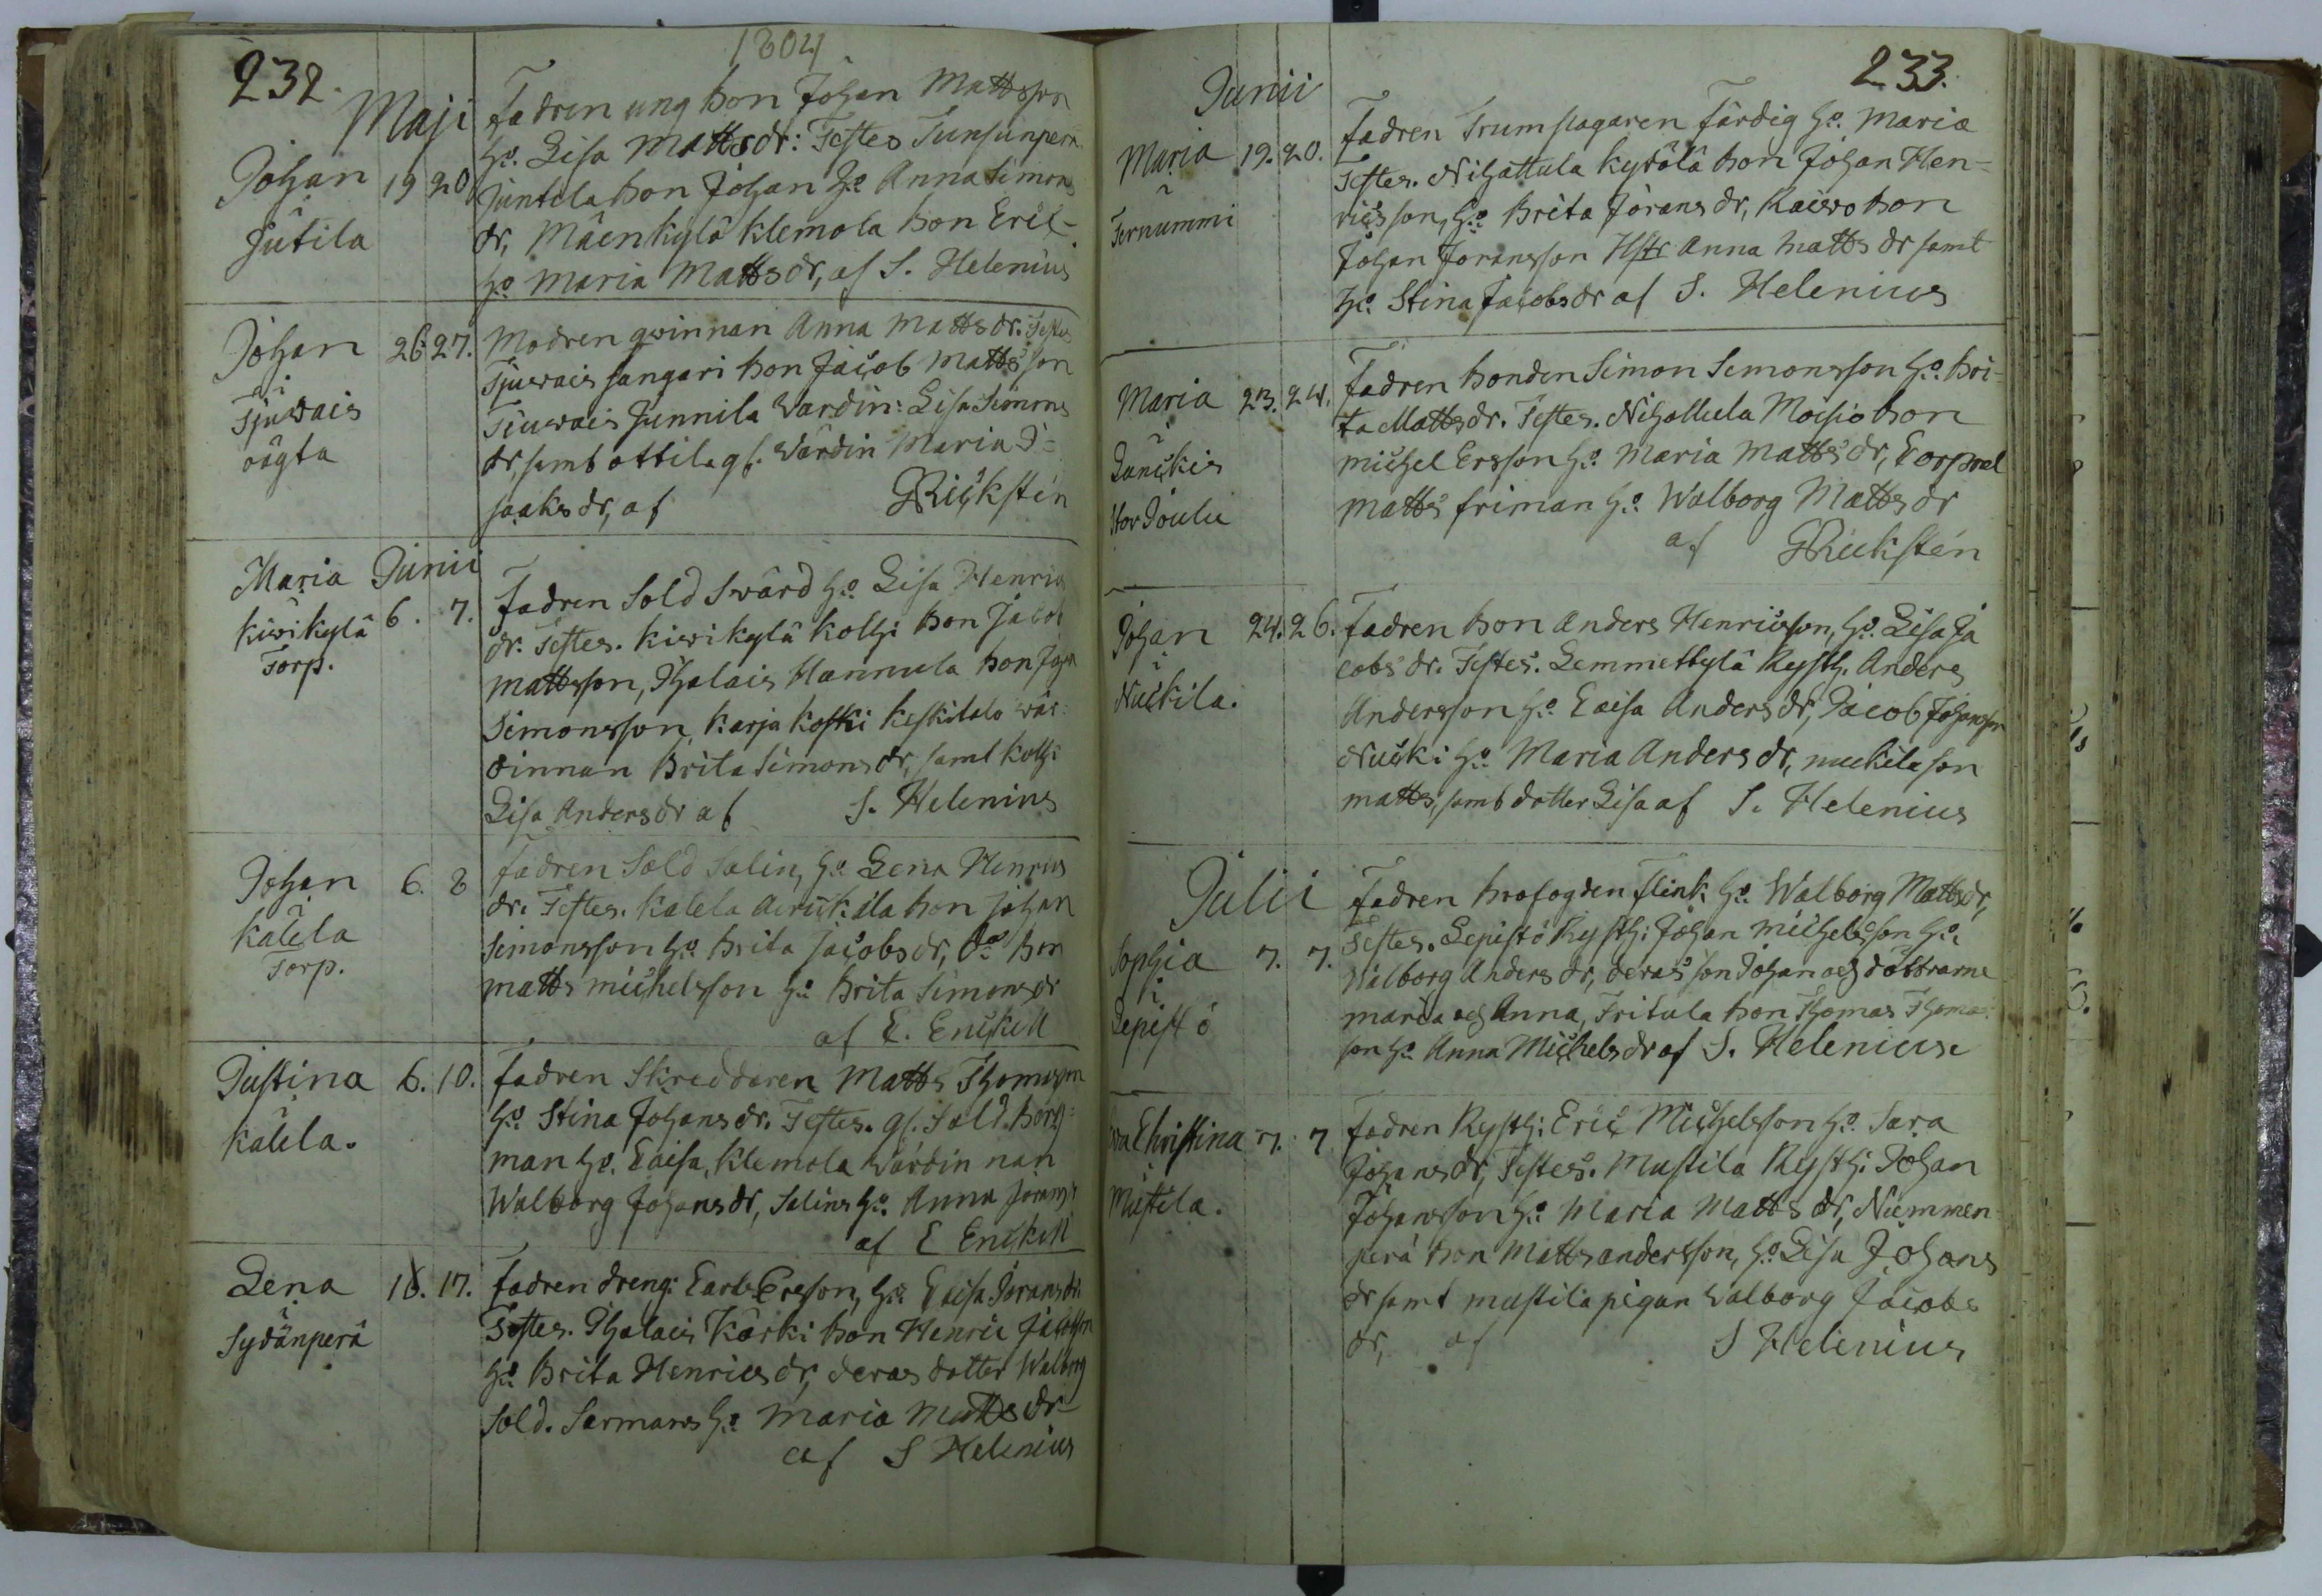 232.
1804
Maji
Johan 19 20
i
Jutila
Fadren ung bon Johan Mattsson
h:o Lisa Mattsdr: Testes Tunsunperä
Juntela bon Johan h:o Anna Simons
dr, Mäenkylä Klemola bon Eric
h:o Maria Mattsdr, af S. Helenius
Johan 26. 27.
i
Tjuvais
oägta
Modren qwinnan Anna Mattsdr. Testes
Tjuvais sangari bon Jacob Mattsson
Tiuvais Junnila Värdin: Lisa Simons
dr, samt ottila gl. Värdin Maria I=
saaksdr, af GRickstén
Junii
Maria
Kivikylä 6. 7.
Torp.
Fadren Sold Svärd h:o Lisa Henrics
dr. Testes. Kivikylä Kolhi bon Jacob
Mattsson, Ihalais Hannula bon Johan
Simonsson, Karja Koski Keskitalo vär=
dinnan Brita Simonsdr, samt Kolhi
Lisa Andersdr af S. Helenius
Johan 6. 8
i
Kalela
Torp.
Fadren Sold Salin, h:o Lena Henrics
dr. Testes. Kalela bon Johan
Simonsson h:o Brita Jacobsdr, d:o bon
Matts Michelsson h:o Brita Simonsdr
af E. Enckell
Justina 6. 10.
i
Kalela.
Fadren Skreddaren Matts Thomsson
h:o Stina Johansdr. Testes. gl. Sold. Borg=
man h:o Caisa, Klemola Värdinnan
Walborg Johansdr, Salins h:o Anna Jorans
af E Enckell
Lena 16. 17.
i
Sydänperä
Fadren dreng: Carl Ersson, h:o Caisa Joransdr.
Testes. Ihalais Kärki bon Henric Jacobsson
h:o Brita Henricsdr, deras dotter Walborg
Sold. Sarmans h:o Maria Mattsdr
af S Helenius
233.
Junii
Maria 19. 20.
i
Ternummi
Fadren Trumslagaren Färdig h:o Maria
Testes. Nihattula Kyrölä bon Johan Hen=
ricsson, h:o Brita Joransdr, Kaivo bon
Johan Joransson Hstr Anna Mattsdr samt
h:o Stina Jacobsdr af S. Helenius
Maria 23. 24.
i
Lanckis
Stor Joulu
Fadren bonden Simon Simonsson h:o Bri=
ta Mattsdr. Testes. Nihattula Moisio bon
Michel Ersson h:o Maria Mattsdr, Corporal
Matts friman h:o Walborg Mattsdr
af GRickstén
Johan 24. 26.
i
Nuckila.
Fadren bon Anders Henricsson, h:o Lisa Ja
cobsdr. Testes. Lemmettylä Rysth. Anders
Andersson h:o Caisa Andersdr, Jacob Johansson
Nucki h:o Maria Andersdr, nuckila son
Matts, samt dotter Lisa af S. Helenius
Julii
Sophia 7. 7.
i
Lepistö
Fadren brofogden Flink h:o Walborg Mattsdr,
Testes. Lepistö Rysth: Johan Michelsson h:o
Walborg Andersdr, deras son Johan och döttrarne
Maria och Anna, Fritula bon Thomas Thomas
son h:o Anna Michelsdr af S. Helenius
Eva Christina 7. 7
i
Mustila.
Fadren Rysth: Eric Michelsson h:o Sara
Johansdr, Testes. Mustila Rysth: Johan
Johansson h:o Maria Mattsdr, Nummen
perä bon Matts andersson, h:o Lisa Johans
dr samt mustila pigan Walborg Jacobs
dr, af S Helenius